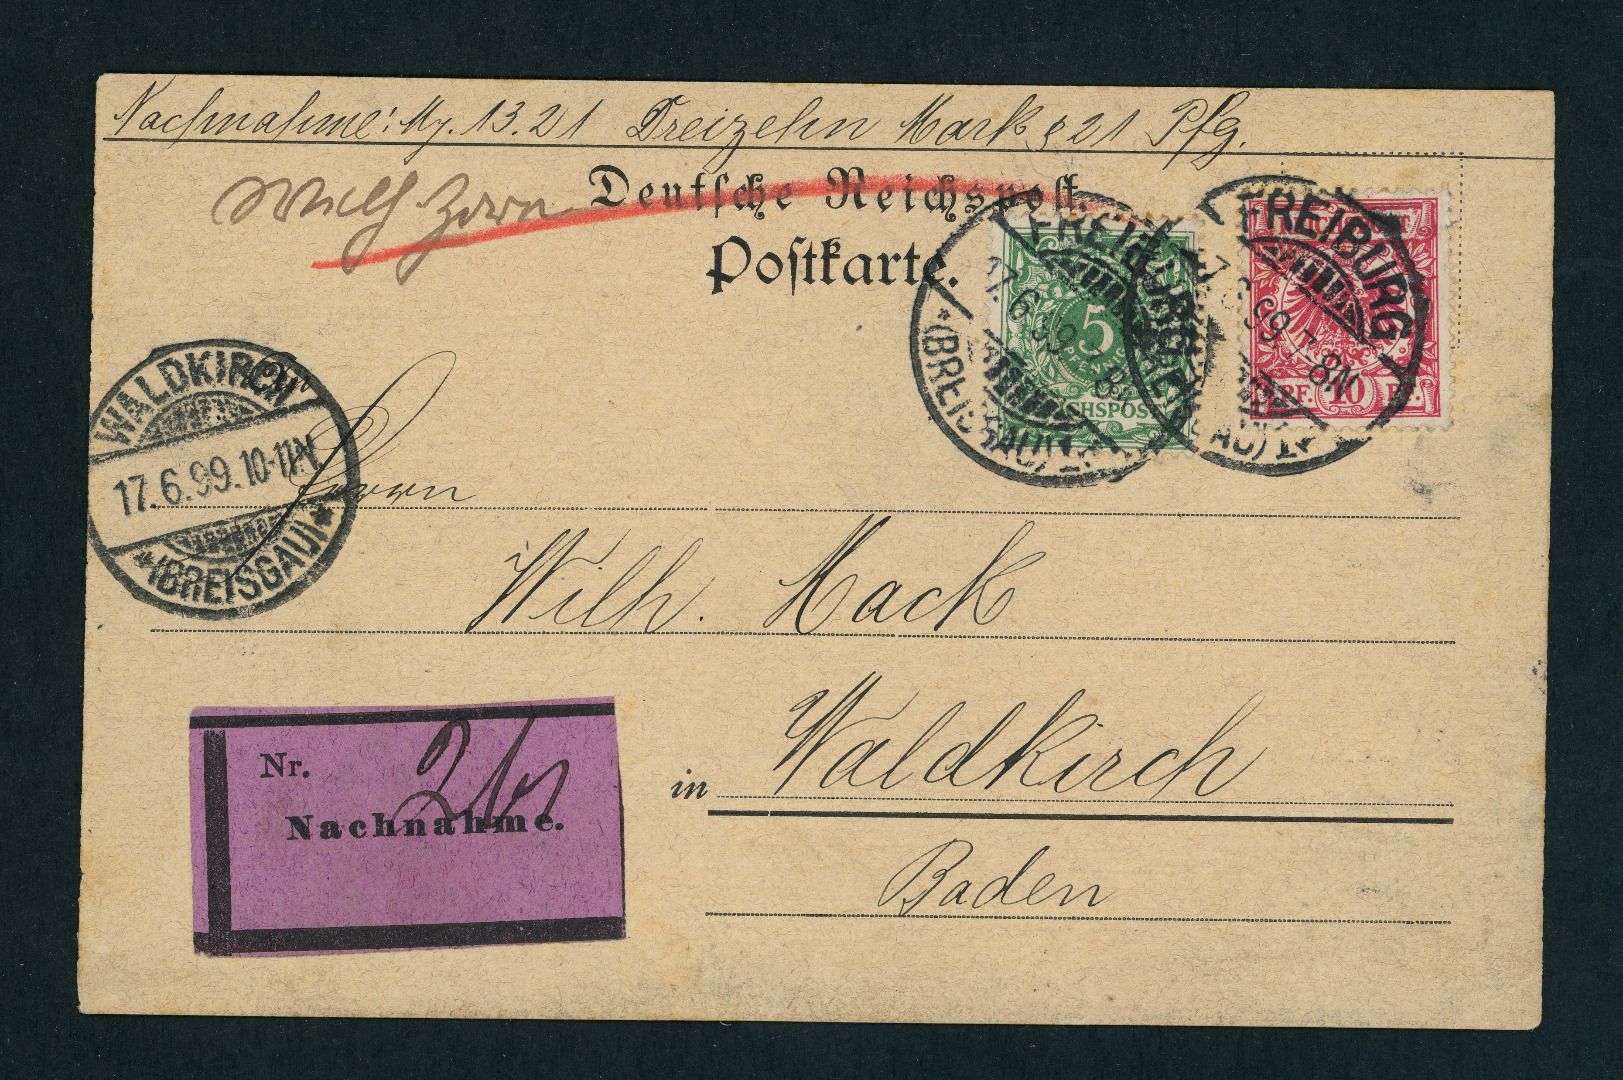 Nachnahme: M. 13.21 Dreizehn Mark & 21 Pfg.
Deutsche Reichspost.
Postkarte.
FREIBURG
17.6.99. 7-8N
*(BREISGAU) 1*
5
PFENNIG
REICHSPOST
FREIBURG
17.6.99. 7-8N
(BREISGAU) 1*
PF. 10 PF.
WALDKIRCH
17.6.99.10-11N
*(BREISGAU)*
Herrn
Wilh. Mack
in Waldkirch
Baden
Nr.
Nachnahme.